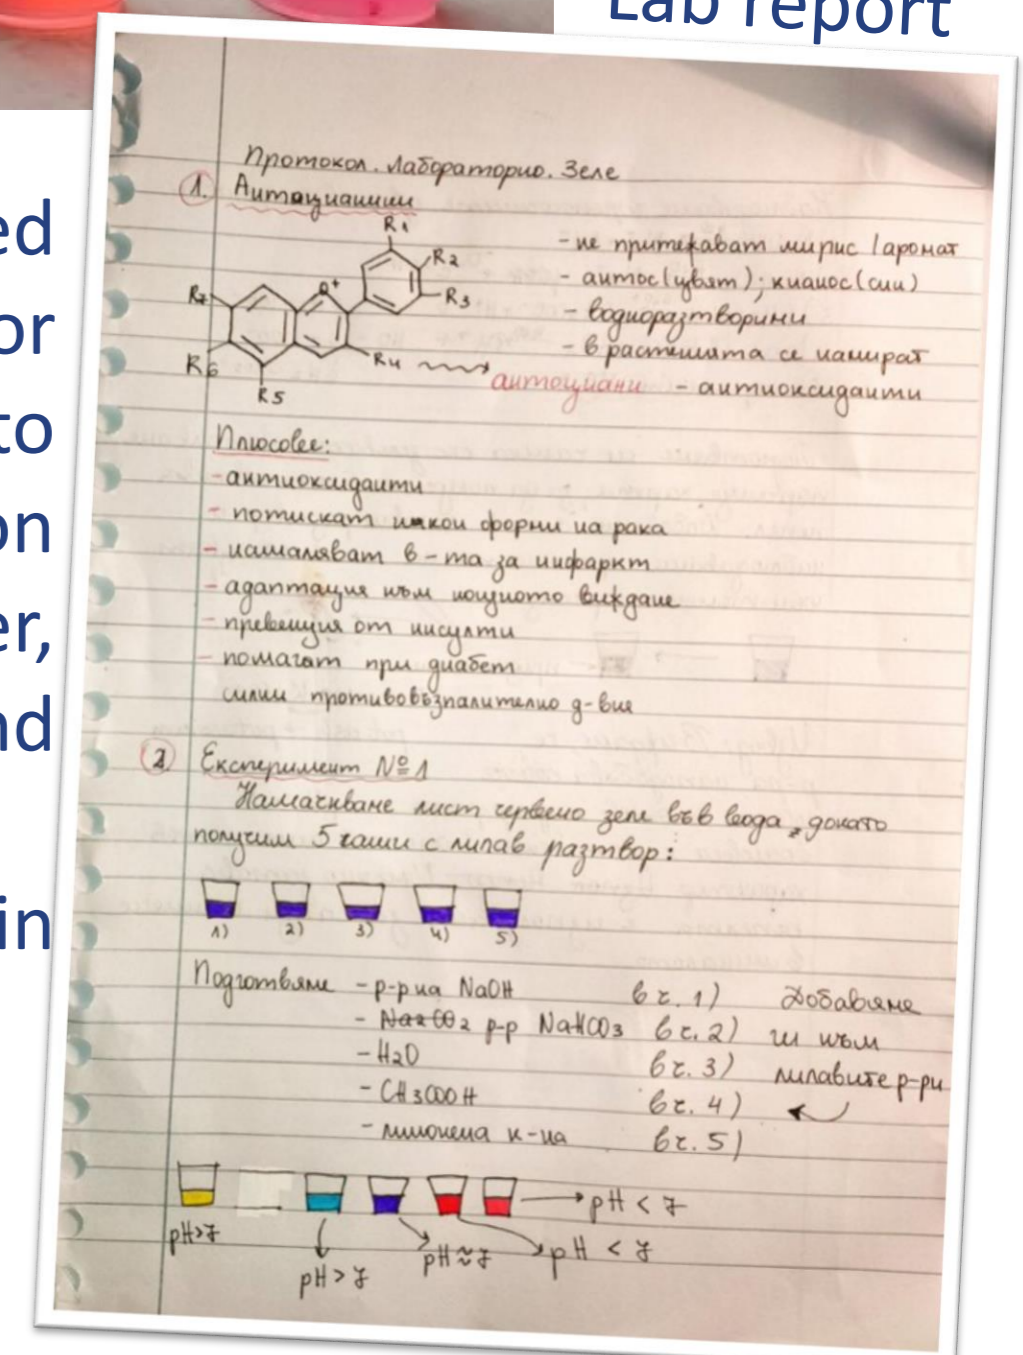 Lab report
ed
or
to
on
er,
nd
in
Протокол. Лабораторно. Зеле
1. Антоцианини
R1
R2
R3
R4
R5
R6
R7
O+
- не притежават мирис / аромат
- антос(цвят); кианос(син)
- водноразтворими
- в растенията се намират
антоциани - антиоксиданти
Плюсове:
- антиоксиданти
- потискат някои форми на рака
- намаляват в-та за инфаркт
- адаптация към нощното виждане
- превенция от инсулти
- помагат при диабет
силни противовъзпалително д-вие
2. Експеримент №1
Намачкване лист червено зеле във вода, докато
получим 5 чаши с лилав разтвор:
1) 2) 3) 4) 5)
Подготвяме - р-р на NaOH в ч. 1) Добавяме
- Na2CO2 р-р NaHCO3 в ч. 2) ги към
- H2O в ч. 3) лилавите р-ри
- CH3COOH в ч. 4)
- лимонена к-на в ч. 5)
pH < 7
pH>7
pH > 7
pH ≈ 7
pH < 7